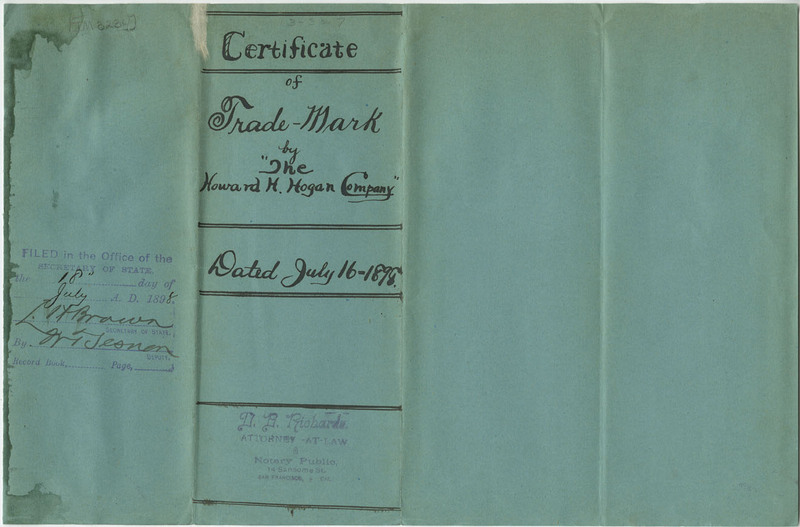 FILED in the Office of the
SECRETARY OF STATE.
the 18" day of
July A. D. 1898.
L. H. Brown
SECRETARY OF STATE.
By
DEPUTY.
Record Book, Page,
Certificate
of
Trade-Mark
by
"The
Howard H. Hogan Company"
Dated July 16-1898.
Richards
ATTORNEY-AT-LAW
&
Notary Public.
SAN FRANCISCO, CAL.